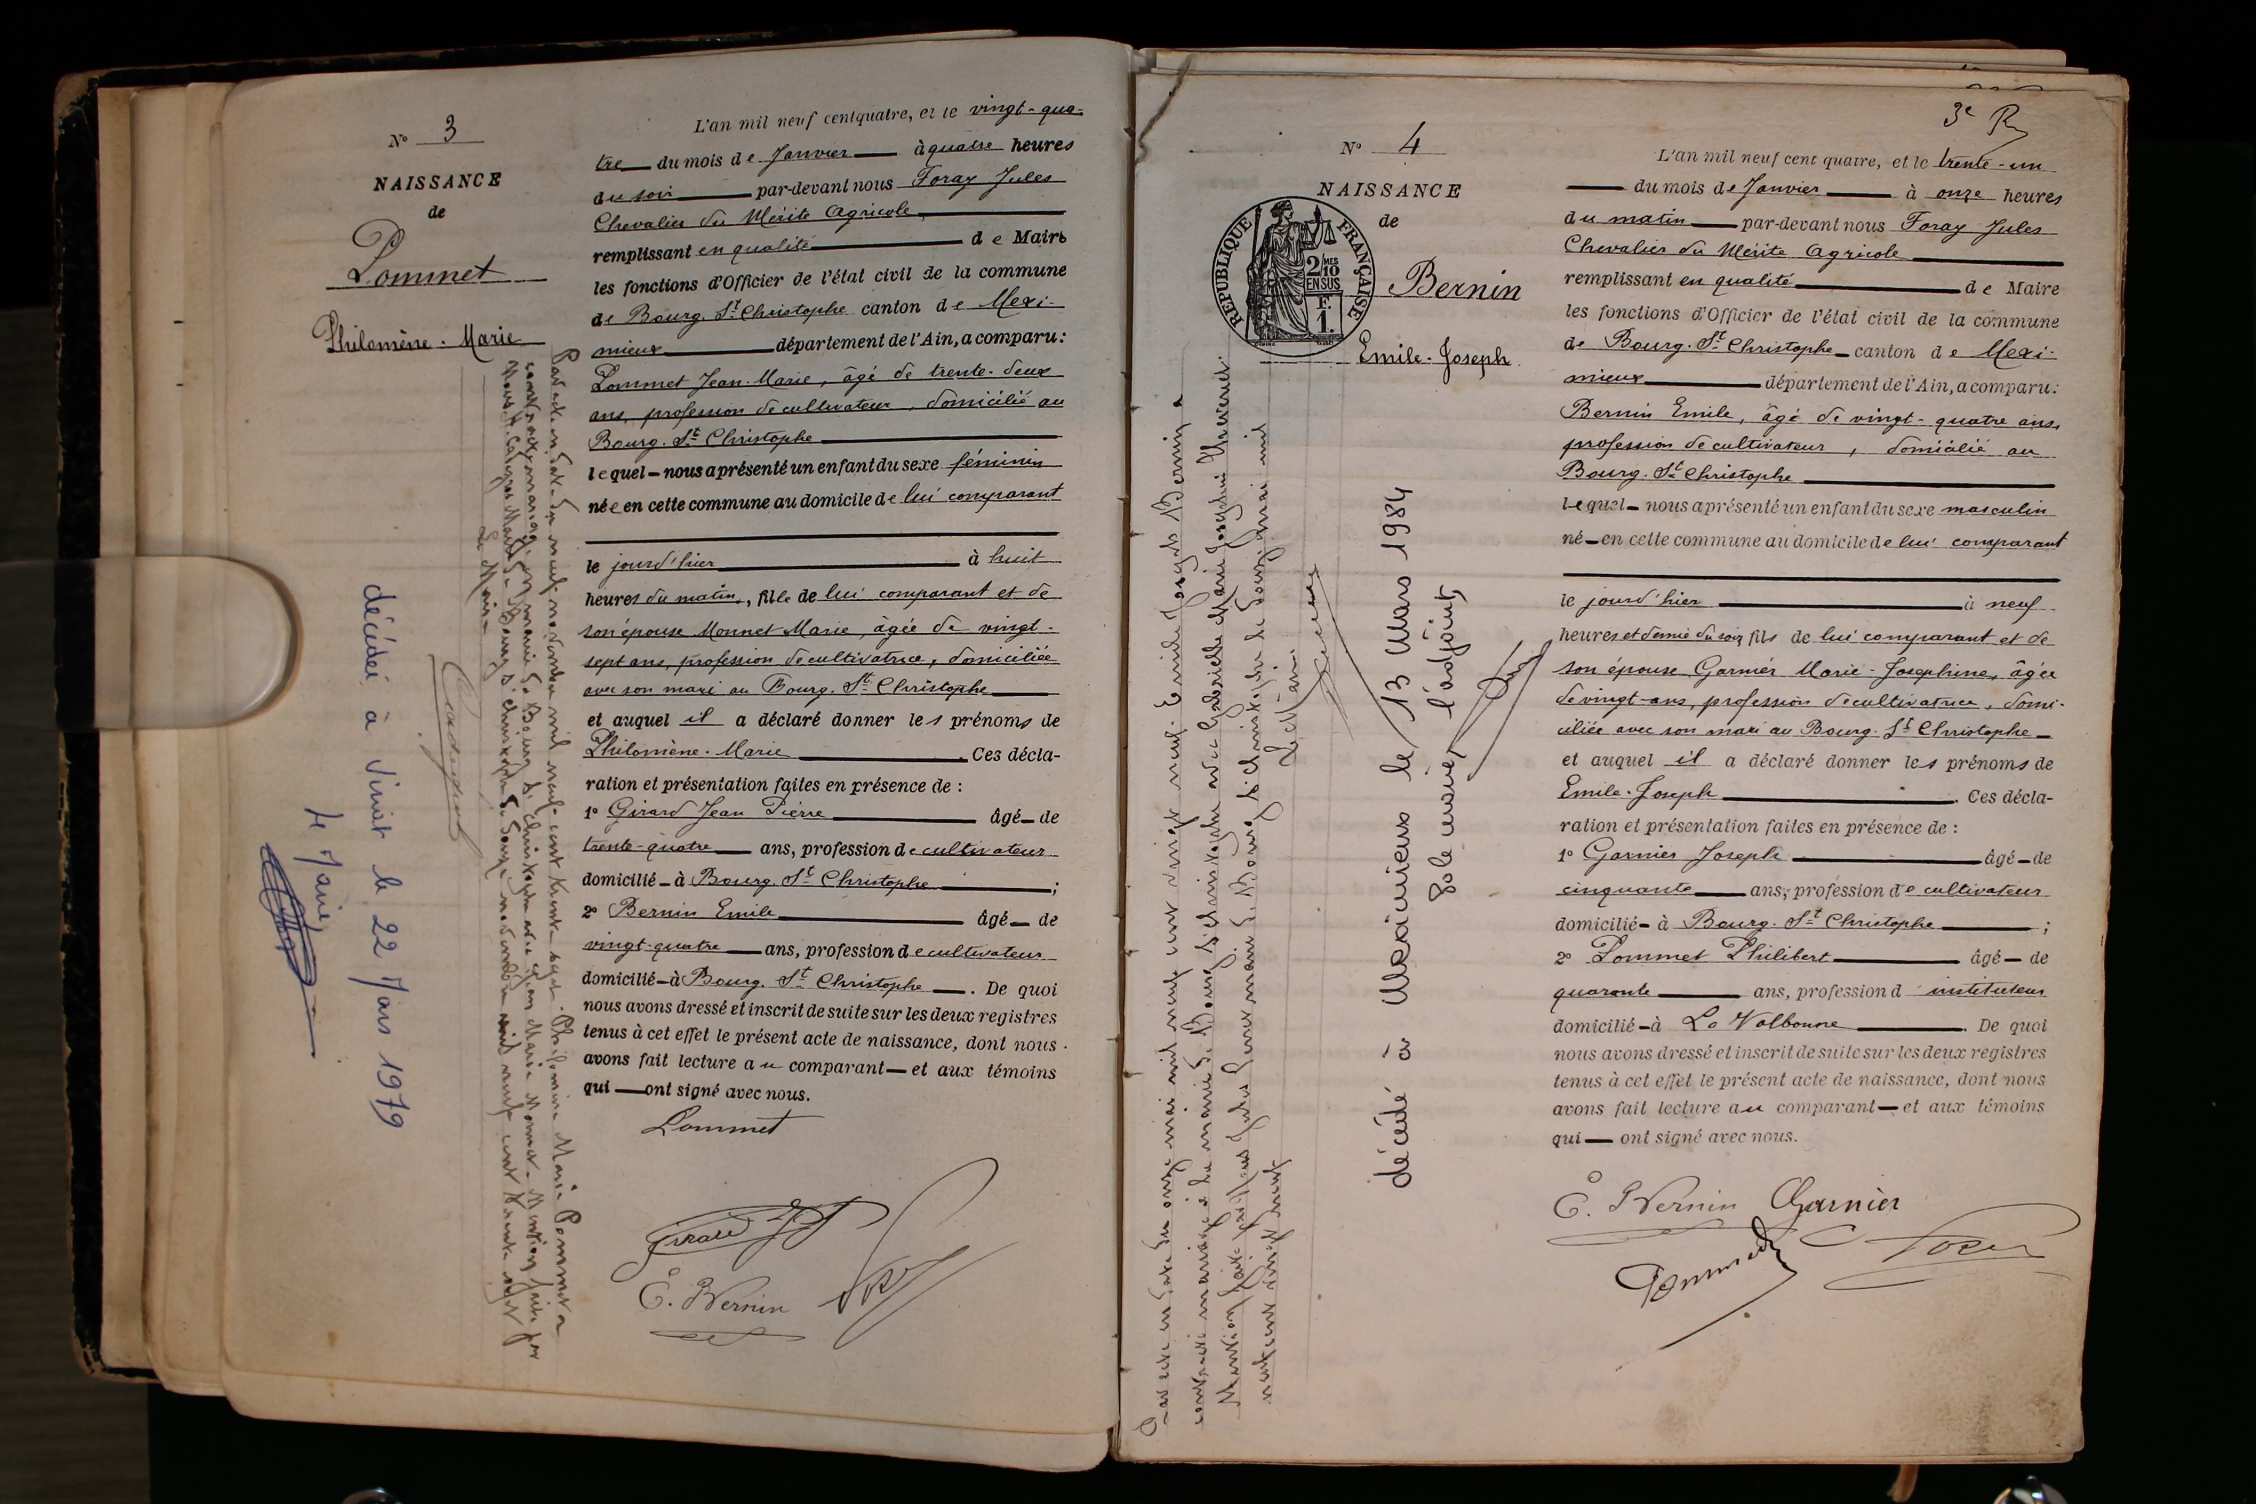 N° 3
NAISSANCE
de
Pommet
Philomène-Marie
L'an mil neuf cent quatre, et le vingt-qua-
tre du mois de Janvier à quatre heures
du soir par-devant nous Foray Jules
Chevalier du Mérite Agricole
remplissant en qualité de Maire
les fonctions d'Officier de l'état civil de la commune
de Bourg-St-Christophe canton de Mexi-
mieux département de l'Ain, a comparu:
Pommet Jean-Marie, âgé de trente-deux
ans, profession de cultivateur, domicilié au
Bourg-St-Christophe
lequel nous a présenté un enfant du sexe féminin
née en cette commune au domicile de lui comparant
le jourd'hier à huit
heures du matin, fille de lui comparant et de
son épouse Monnet Marie, âgée de vingt-
sept ans, profession de cultivatrice, domiciliée
avec son mari au Bourg-St-Christophe
et auquel il a déclaré donner les prénoms de
Philomène-Marie. Ces décla-
ration et présentation faites en présence de :
1° Girard Jean Pierre âgé de
trente-quatre ans, profession de cultivateur
domicilié à Bourg-St-Christophe ;
2° Bernin Emile âgé de
vingt-quatre ans, profession de cultivateur
domicilié à Bourg-St-Christophe. De quoi
nous avons dressé et inscrit de suite sur les deux registres
tenus à cet effet le présent acte de naissance, dont nous
avons fait lecture au comparant et aux témoins
qui ont signé avec nous.
Pommet
Girard
E. Bernin
Par acte en date du neuf novembre mil neuf cent trente sept Philomène Marie Pommet a
contracté mariage en mairie de Bourg St Christophe avec Marie Monnet. Mention faite par
Nous Maire de Bourg St Christophe le douze novembre mil neuf cent trente sept
Le Maire
décédée à Viriat le 22 Mars 1979
le Maire,
3e R
N° 4
NAISSANCE
de
REPUBLIQUE FRANÇAISE
2 MES
10
EN SUS
F.
1.
Bernin
Emile-Joseph
L'an mil neuf cent quatre, et le trente-un
du mois de Janvier à onze heures
du matin par-devant nous Foray Jules
Chevalier du Mérite Agricole
remplissant en qualité de Maire
les fonctions d'Officier de l'état civil de la commune
de Bourg-St-Christophe canton de Mexi-
mieux département de l'Ain, a comparu:
Bernin Emile, âgé de vingt-quatre ans,
profession de cultivateur, domicilié au
Bourg-St-Christophe
lequel nous a présenté un enfant du sexe masculin
né en cette commune au domicile de lui comparant
le jourd'hier à neuf
heures et demie du soir, fils de lui comparant et de
son épouse Garnier Marie-Josephine, âgée
de vingt-ans, profession de cultivatrice, domi-
ciliée avec son mari au Bourg-St-Christophe
et auquel il a déclaré donner les prénoms de
Emile-Joseph. Ces décla-
ration et présentation faites en présence de :
1° Garnier Joseph âgé de
cinquante ans, profession de cultivateur
domicilié à Bourg-St-Christophe ;
2° Pommet Philibert âgé de
quarante ans, profession d instituteur
domicilié à La Valbonne. De quoi
nous avons dressé et inscrit de suite sur les deux registres
tenus à cet effet le présent acte de naissance, dont nous
avons fait lecture au comparant et aux témoins
qui ont signé avec nous.
E. Bernin Garnier
Pommet Foray
Par acte en date du onze mai mil neuf cent vingt neuf Emile Joseph Bernin a
contracté mariage à la mairie de Bourg St Christophe avec Gabrielle Marie Joséphine
Mention faite par nous maire de Bourg St Christophe le douze mai mil
neuf cent vingt neuf
Le Maire
décédé à Meximieux le 13 Mars 1984
po le maire, l'adjoint,